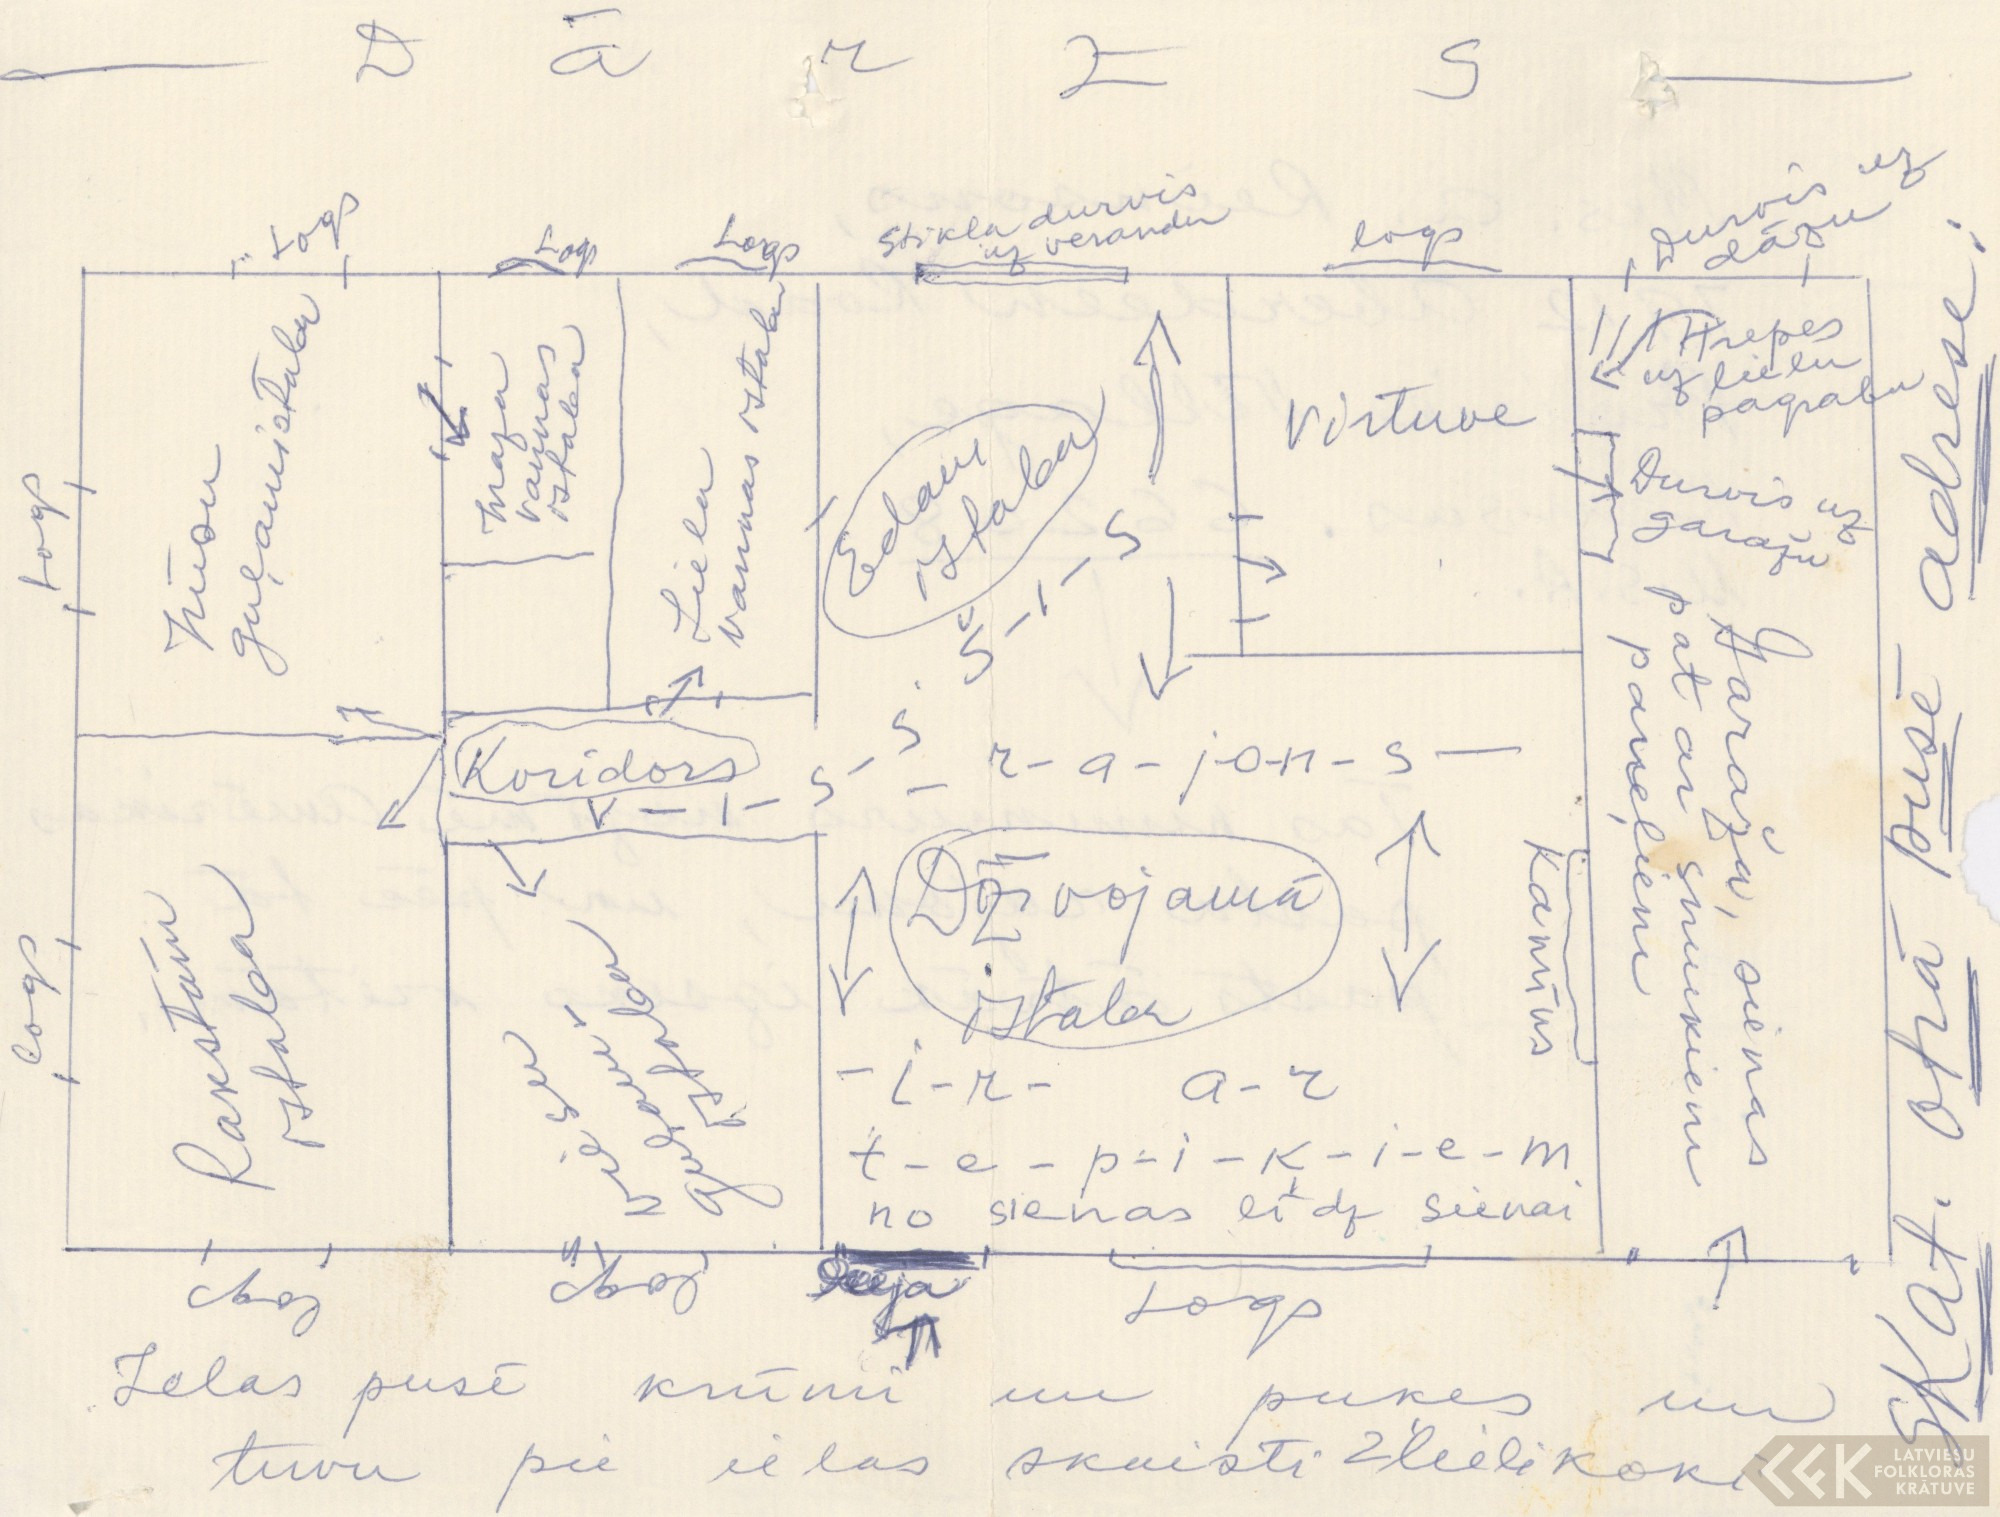 — D ā r z s —
Logs
Logs
Logs
Stikla durvis
uz verandu
logs
Durvis uz
dārzu
Mūsu
guļamistaba
Maza
vannas
istaba
Liela
vannas istaba
Ēdam
istaba
Virtuve
Trepes
uz lielu
pagrabu
Durvis uz
garāžu
Logs
Š-ī-s
Koridors
r-a-jon-s—
Garāža, sienas
pat ar smukiem
paneļiem
Kamīns
Logs
Rakstām
istaba
Viesu
guļamā
istaba
Dzīvojamā
istaba
-i-r- a-r
t-e-p-i-k-i-e-m
no sienas līdz sienai
Logs
Logs
Ieeja
Logs
Ielas pusē krūmi un pukes un
tuvu pie ielas skaisti 2 lieli koki
Skat. otrā pusē adrese:
LATVIEŠU
FOLKLORAS
KRĀTUVE